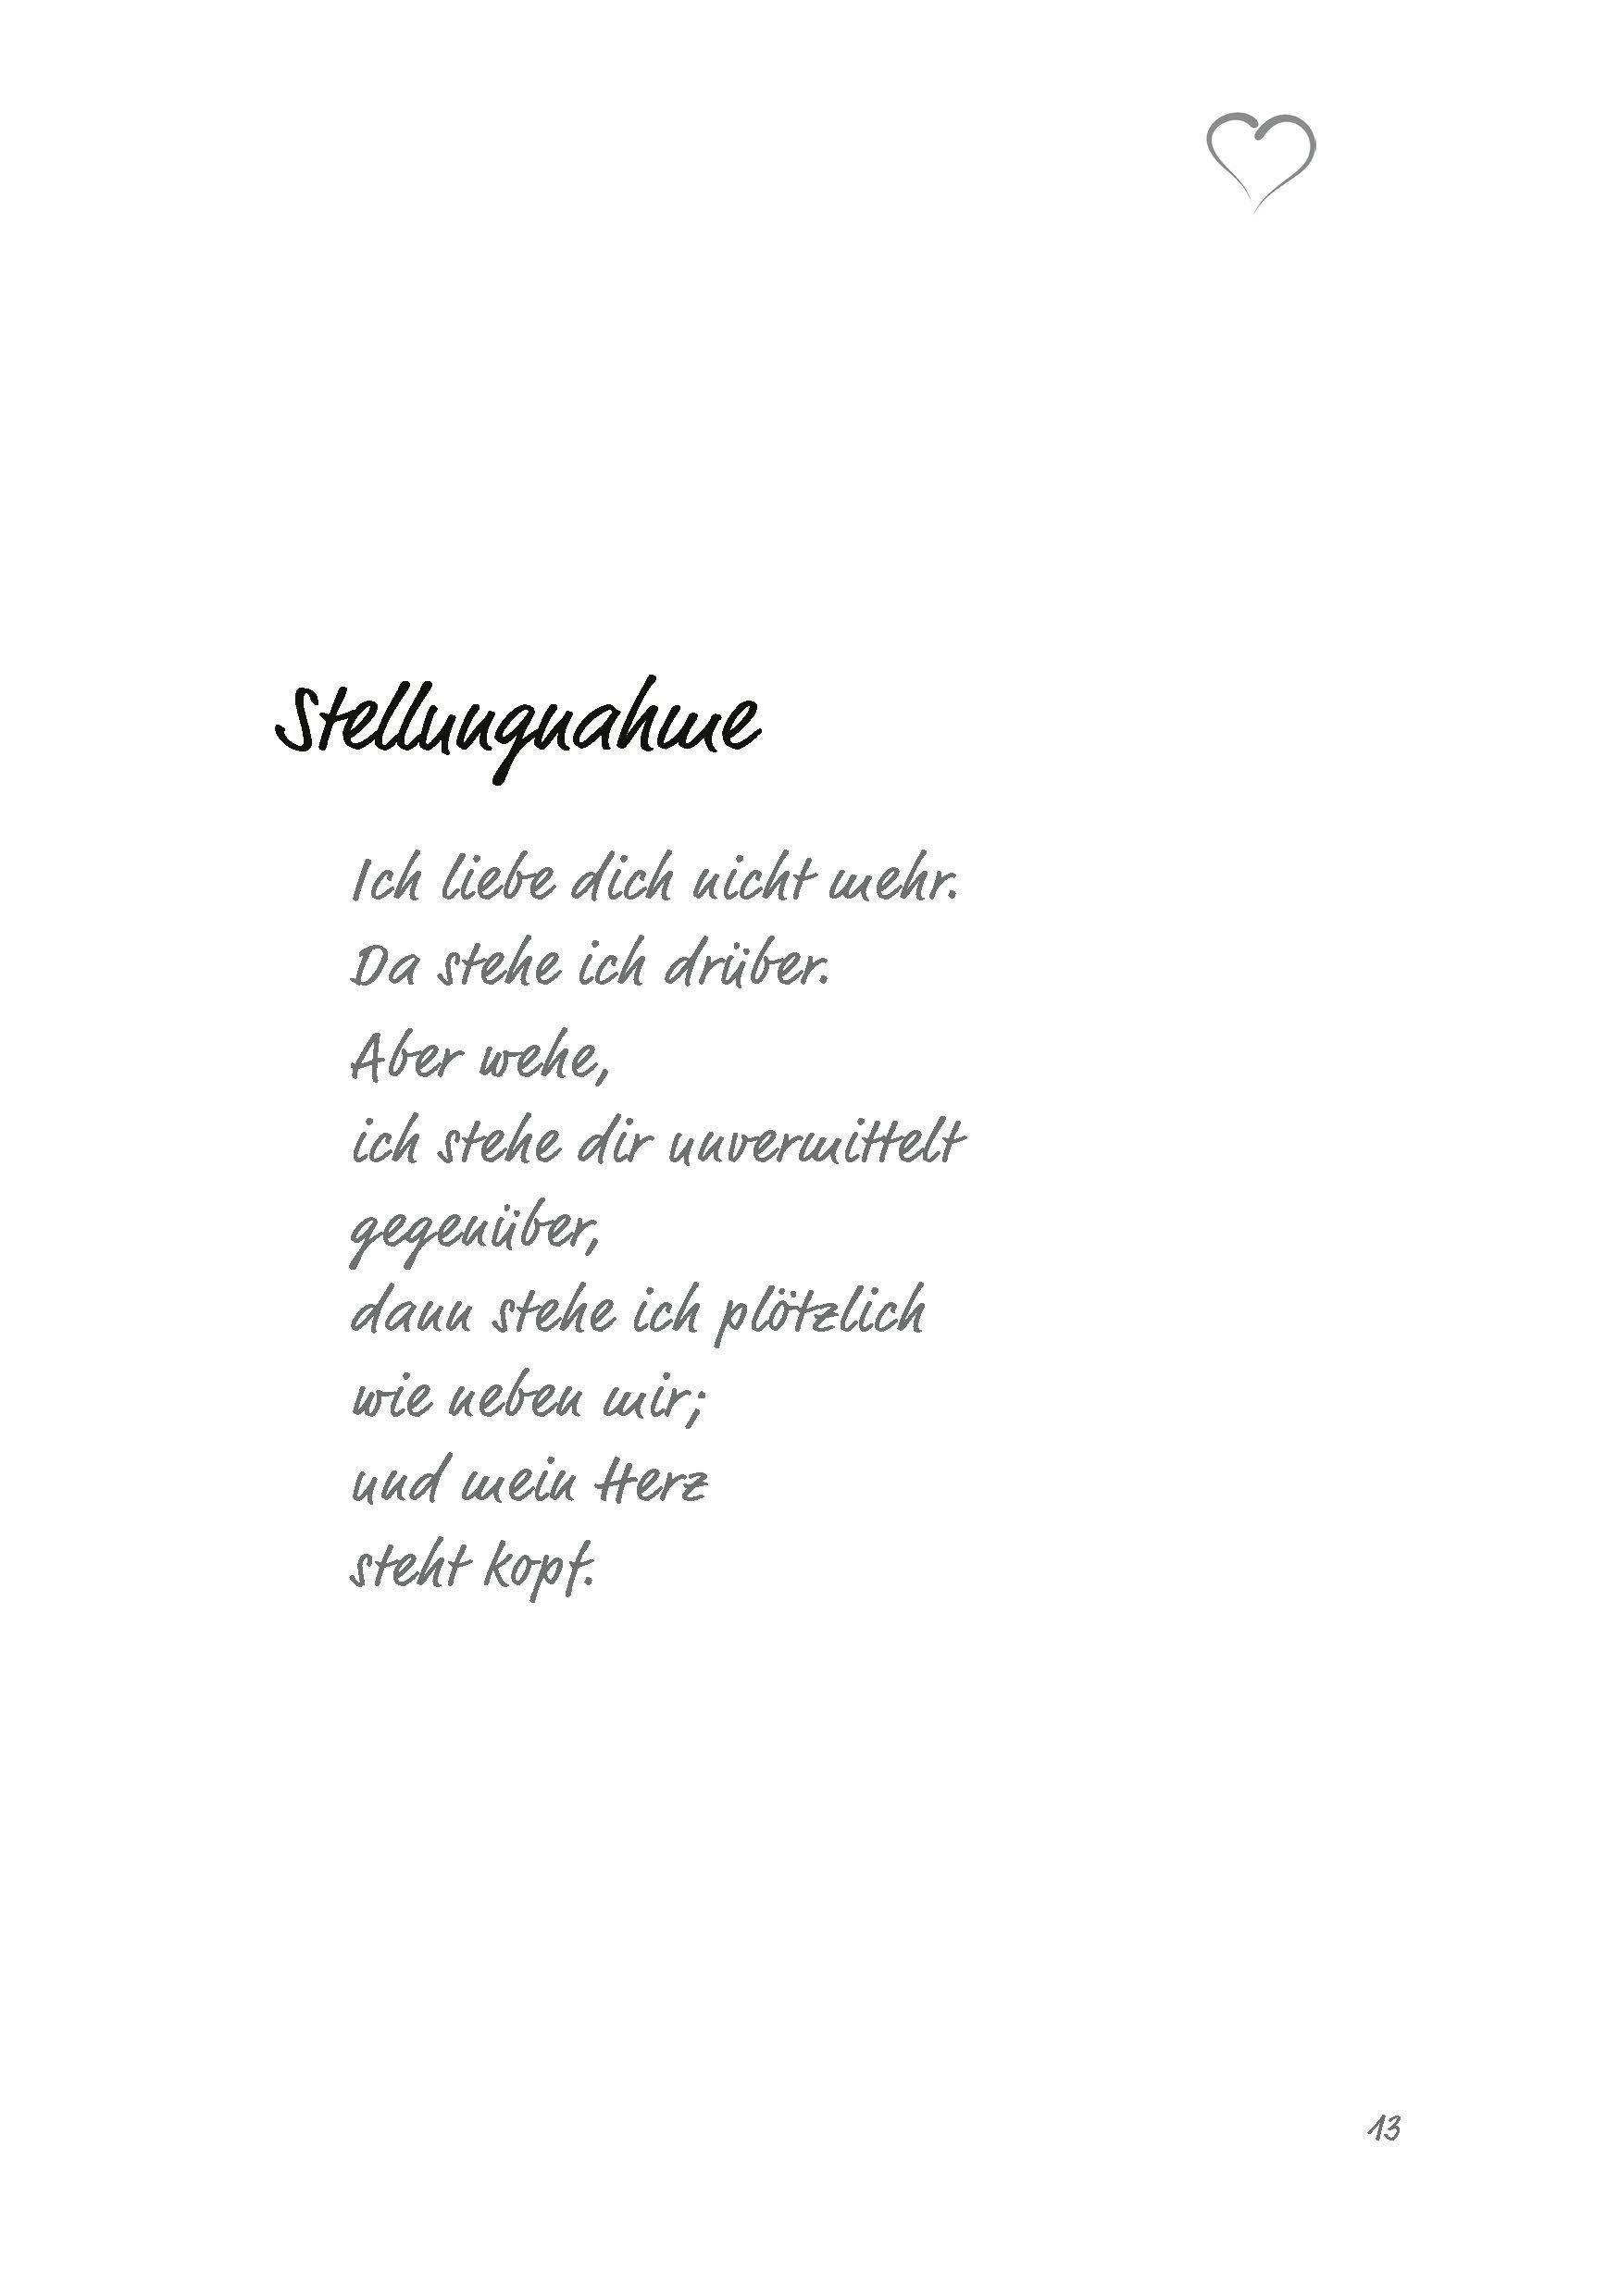 Stellungnahme
Ich liebe dich nicht mehr.
Da stehe ich drüber.
Aber wehe,
ich stehe dir unvermittelt
gegenüber,
dann stehe ich plötzlich
wie neben mir;
und mein Herz
steht kopf.
13